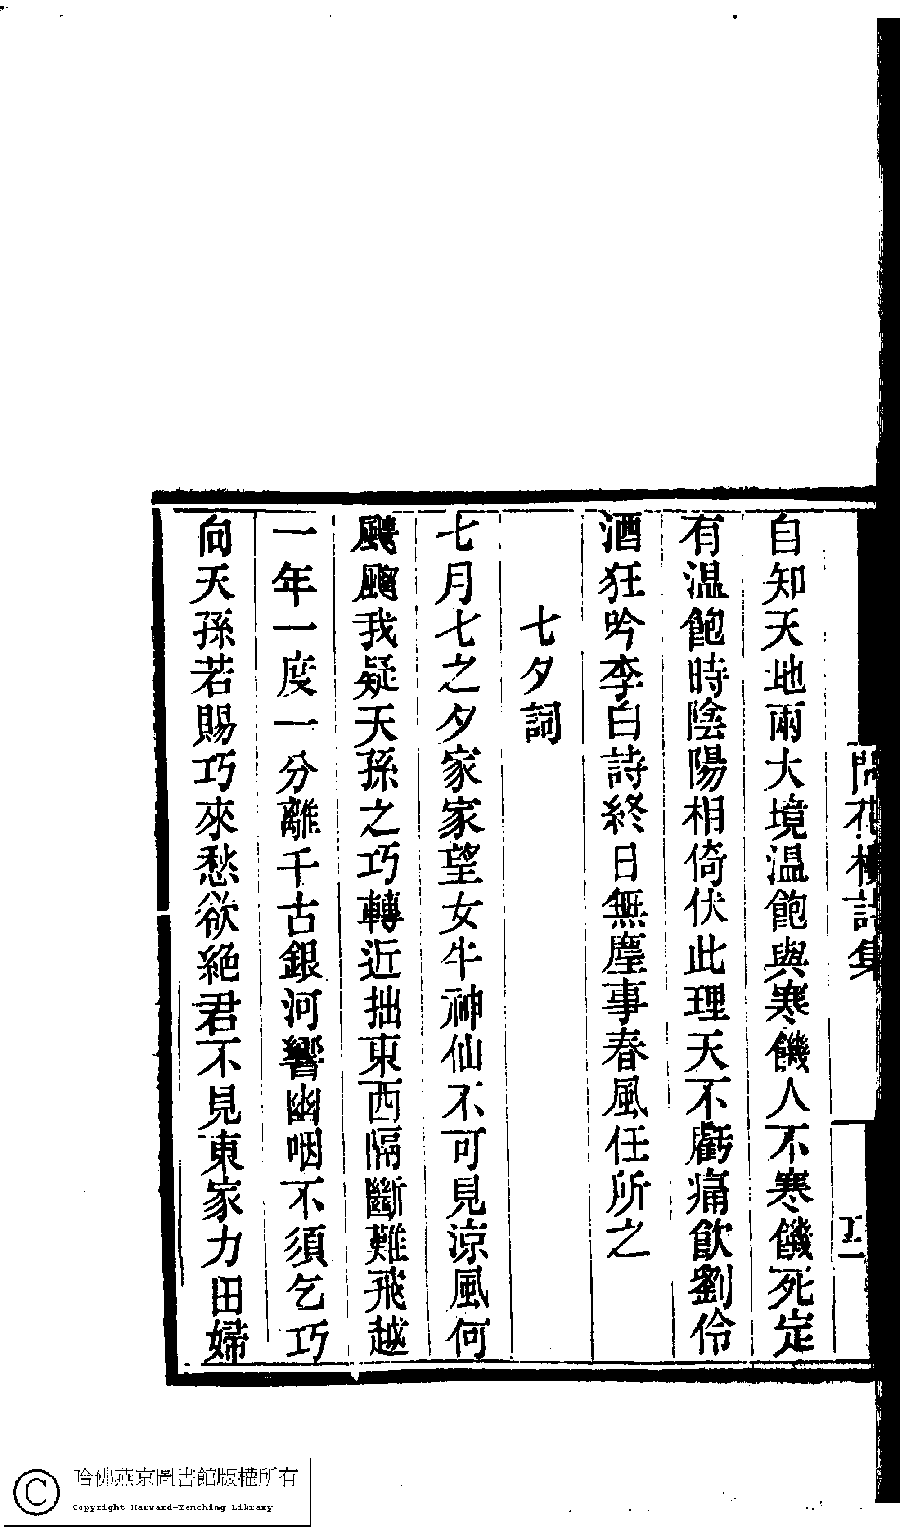 問花樓詩集
五
自知天地兩大境溫飽與寒饑人不寒饑死定
有溫飽時陰陽相倚伏此理天不虧痛飲劉伶
酒狂吟李白詩終日無塵事春風任所之
七夕詞
七月七之夕家家望女牛神仙不可見涼風何
颼颼我疑天孫之巧轉近拙東西隔斷難飛越
一年一度一分離千古銀河響幽咽不須乞巧
向天孫若賜巧來愁欲絕君不見東家力田婦
哈佛燕京圖書館版權所有
Copyright Harvard-Yenching Library